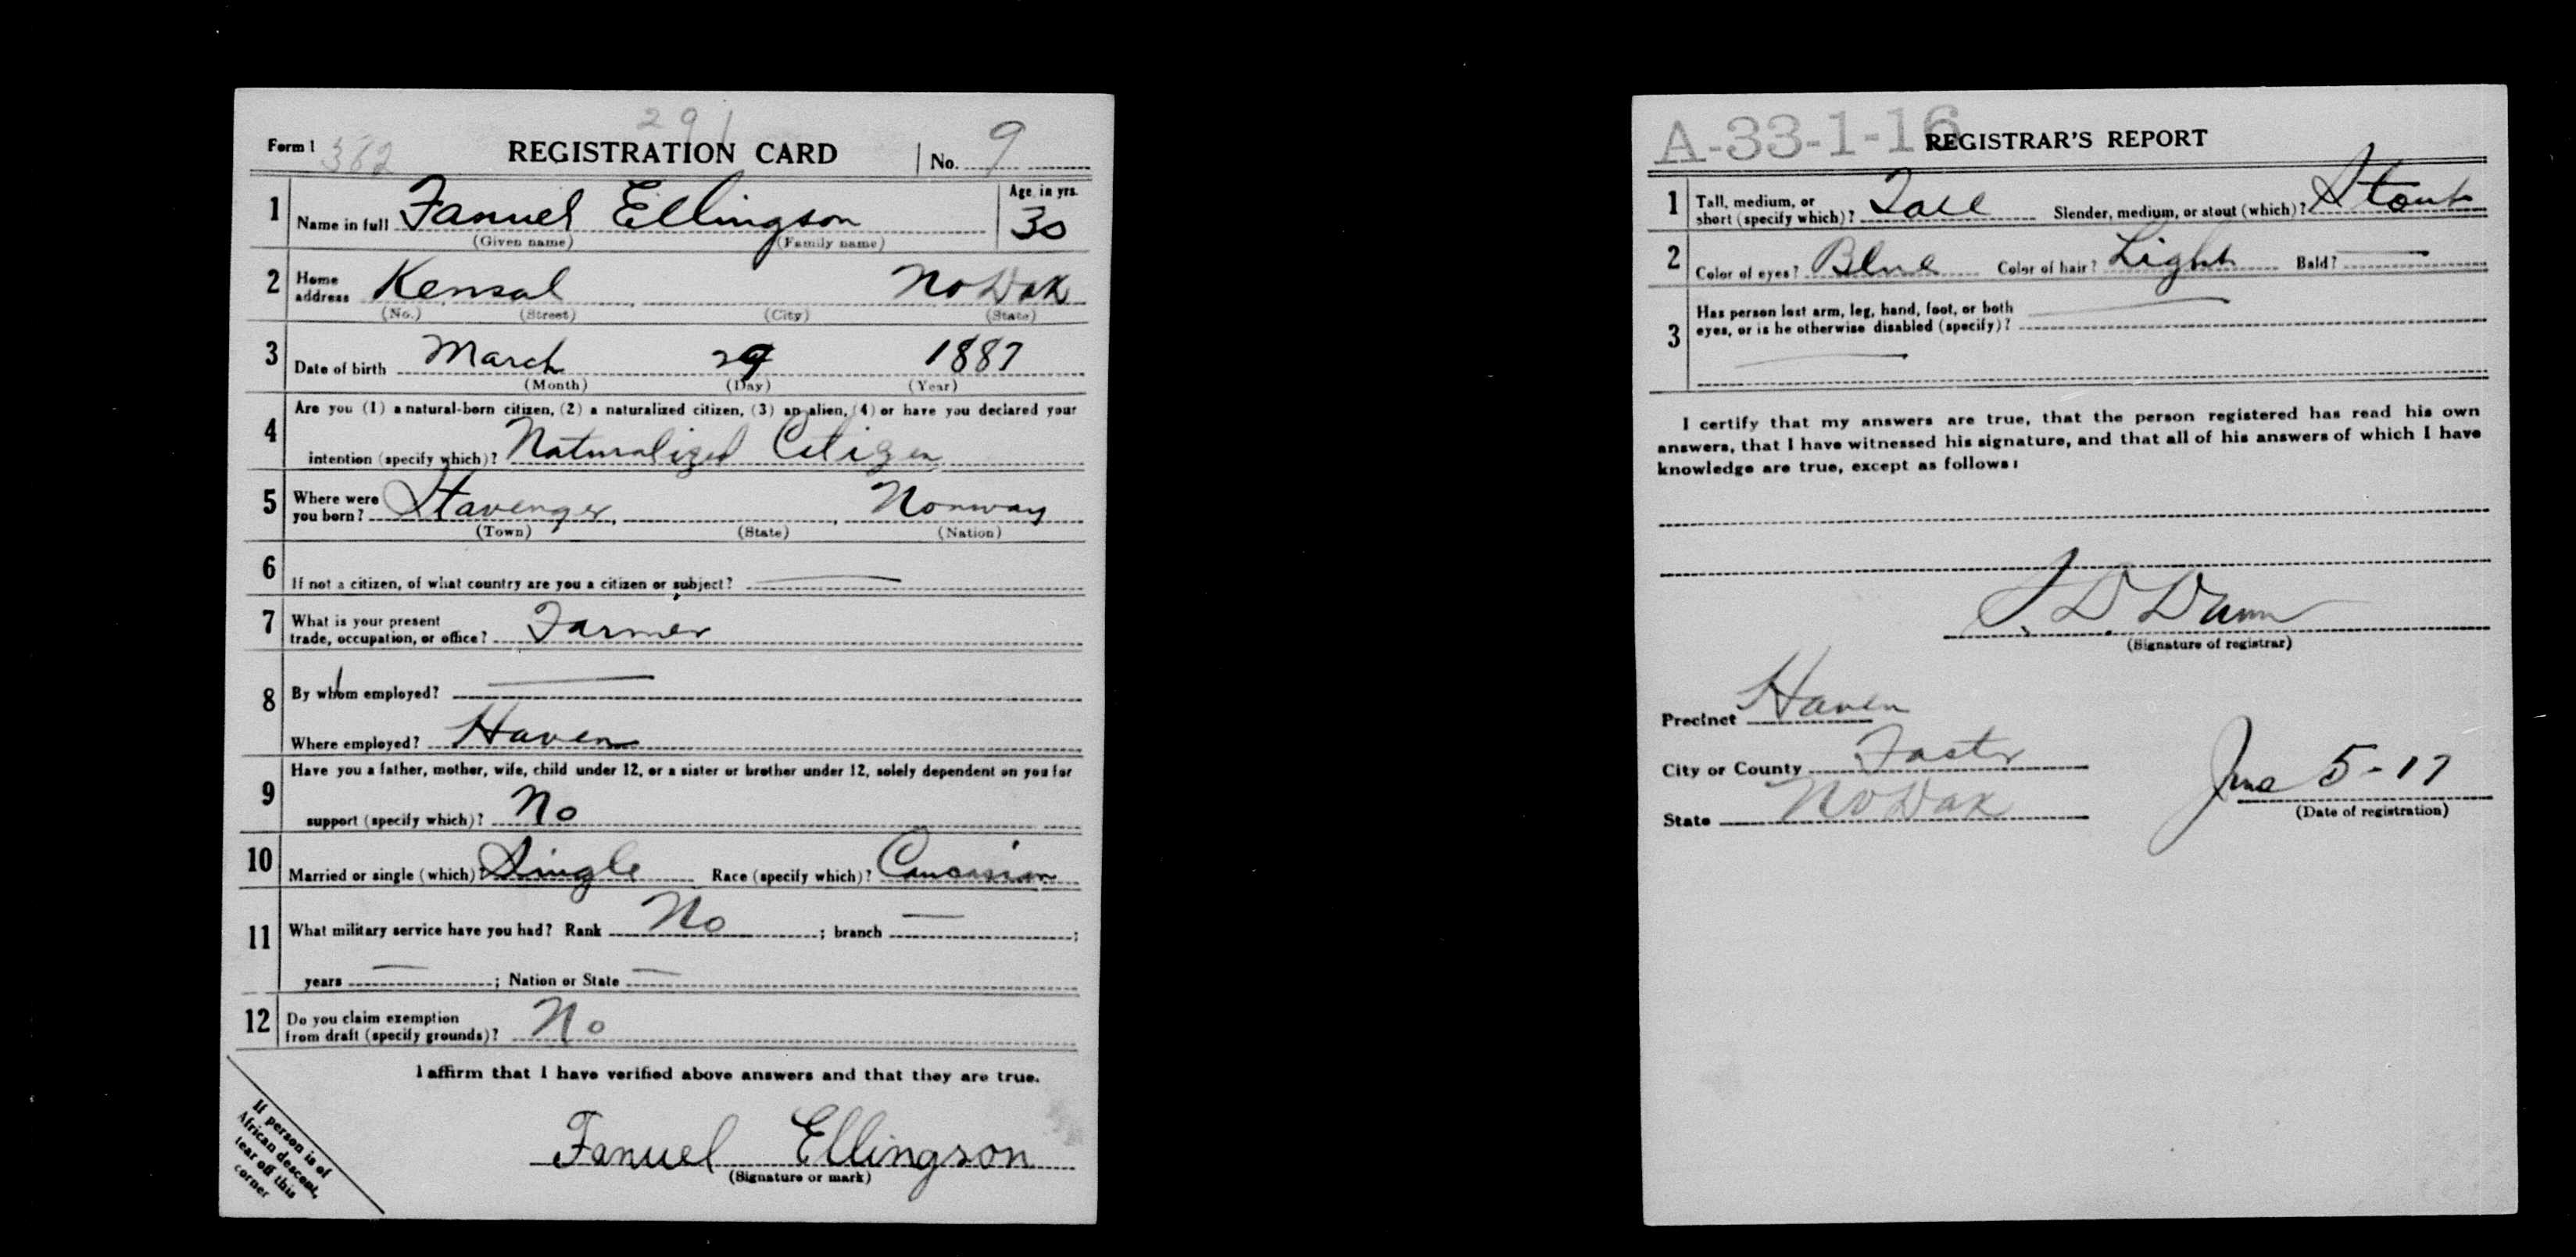 291
Form 1 382 REGISTRATION CARD No. 9
1 Name in full Fanuel Ellingson Age, in yrs. 30
(Given name) (Family name)
2 Home address Kensal No Dak
(No.) (Street) (City) (State)
3 Date of birth March 29 1887
(Month) (Day) (Year)
4 Are you (1) a natural-born citizen, (2) a naturalized citizen, (3) an alien, (4) or have you declared your
intention (specify which)? Naturalized Citizen
5 Where were you born? Stavenger, Norway
(Town) (State) (Nation)
6 If not a citizen, of what country are you a citizen or subject?
7 What is your present
trade, occupation, or office? Farmer
8 By whom employed?
Where employed? Haven
9 Have you a father, mother, wife, child under 12, or a sister or brother under 12, solely dependent on you for
support (specify which)? No
10 Married or single (which)? Single Race (specify which)? Caucasian
11 What military service have you had? Rank No ; branch ;
years ; Nation or State
12 Do you claim exemption
from draft (specify grounds)? No
I affirm that I have verified above answers and that they are true.
Fanuel Ellingson
(Signature or mark)
If person is of
African descent,
tear off this
corner
A-33-1-16 REGISTRAR'S REPORT
1 Tall, medium, or
short (specify which)? Tall Slender, medium, or stout (which)? Stout
2 Color of eyes? Blue Color of hair? Light Bald?
3 Has person lost arm, leg, hand, foot, or both
eyes, or is he otherwise disabled (specify)?
I certify that my answers are true, that the person registered has read his own
answers, that I have witnessed his signature, and that all of his answers of which I have
knowledge are true, except as follows:
D Dunn
(Signature of registrar)
Precinct Haven
City or County Foster
State No Dak
June 5-17
(Date of registration)